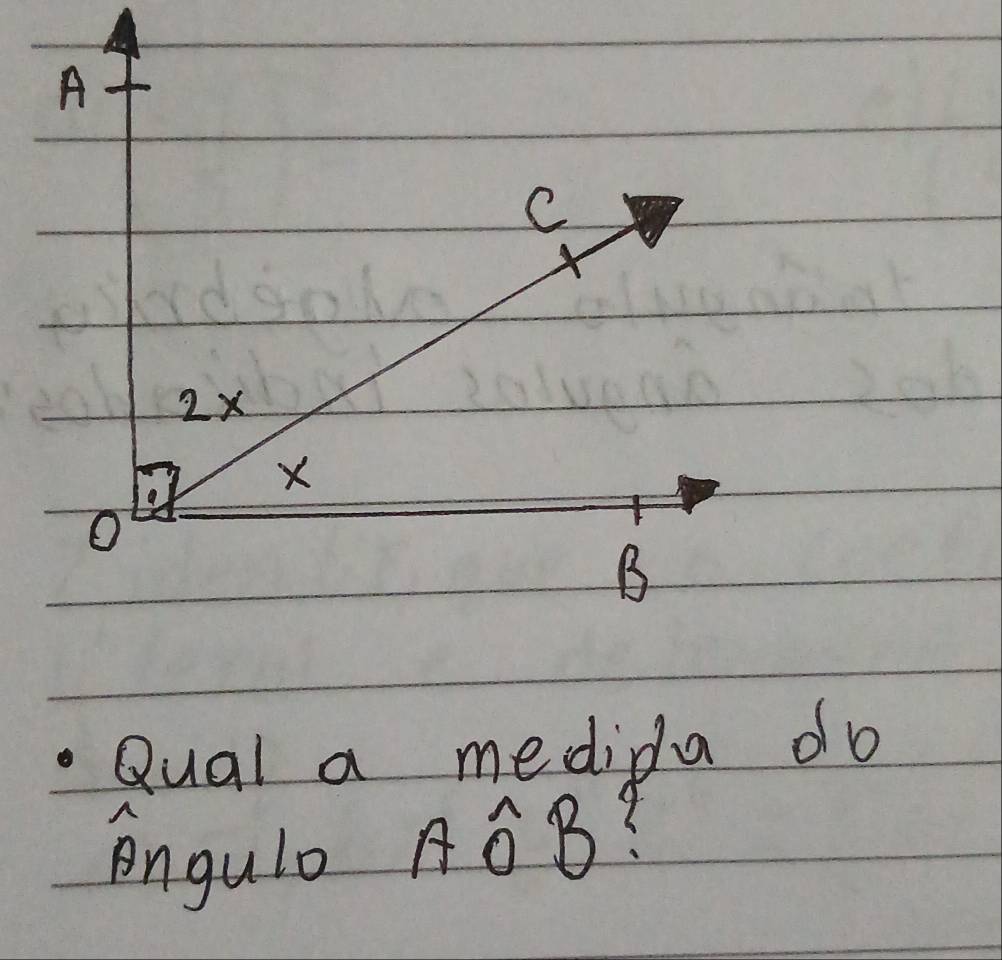 A
C
2x
x
O
B
• Qual a medida do
Ângulo AÔB?